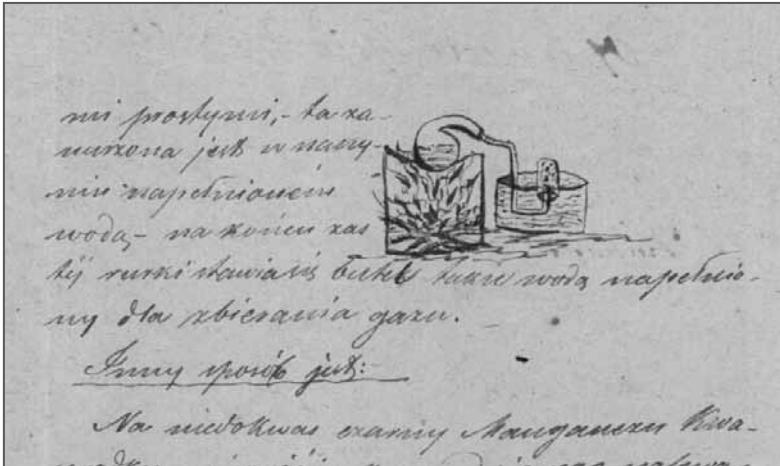 mi prostymi,- ta za-
nurzona jest w naczy-
niu napełnionem
wodą,- na końcu zas
téj rurki stawia się butel także wodą napełnio-
ny dla zbierania gazu.
Inny sposób jest:
Na niedokwas czarny Manganezu Kwa-